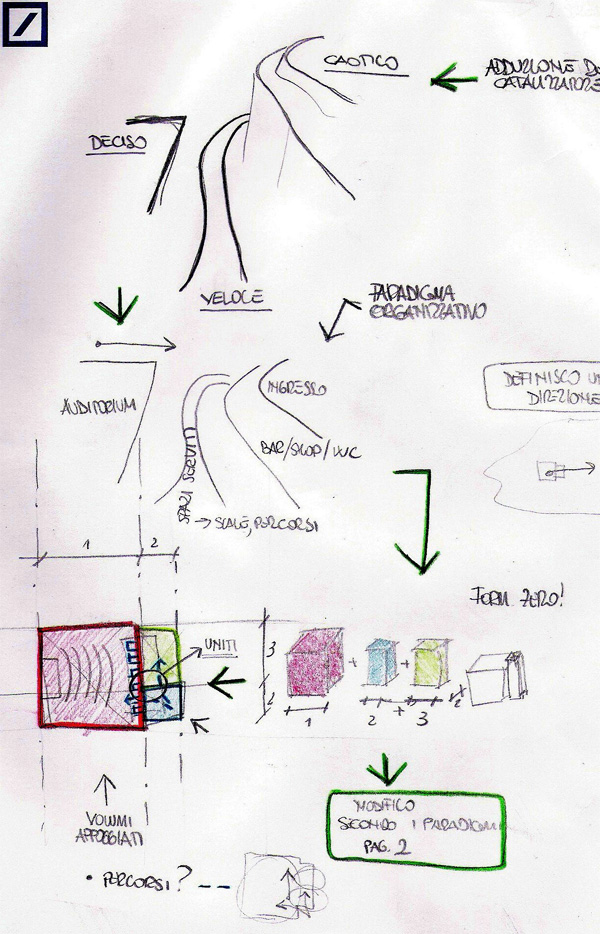 CAOTICO
ADDUZIONE
CATALIZZATORE
DECISO
VELOCE
PARADIGMA
ORGANIZZATIVO
AUDITORIUM
INGRESSO
DEFINISCO
DIREZIONE
BAR/SHOP/WC
SPAZI SERVITI
→ SCALE, PERCORSI
1 2
FORM ZERO!
UNITI
3
2
+ +
1 2 + 3
VOLUMI
APPOGGIATI
MODIFICO
SECONDO I PARADIGMI
PAG. 2
• PERCORSI? --